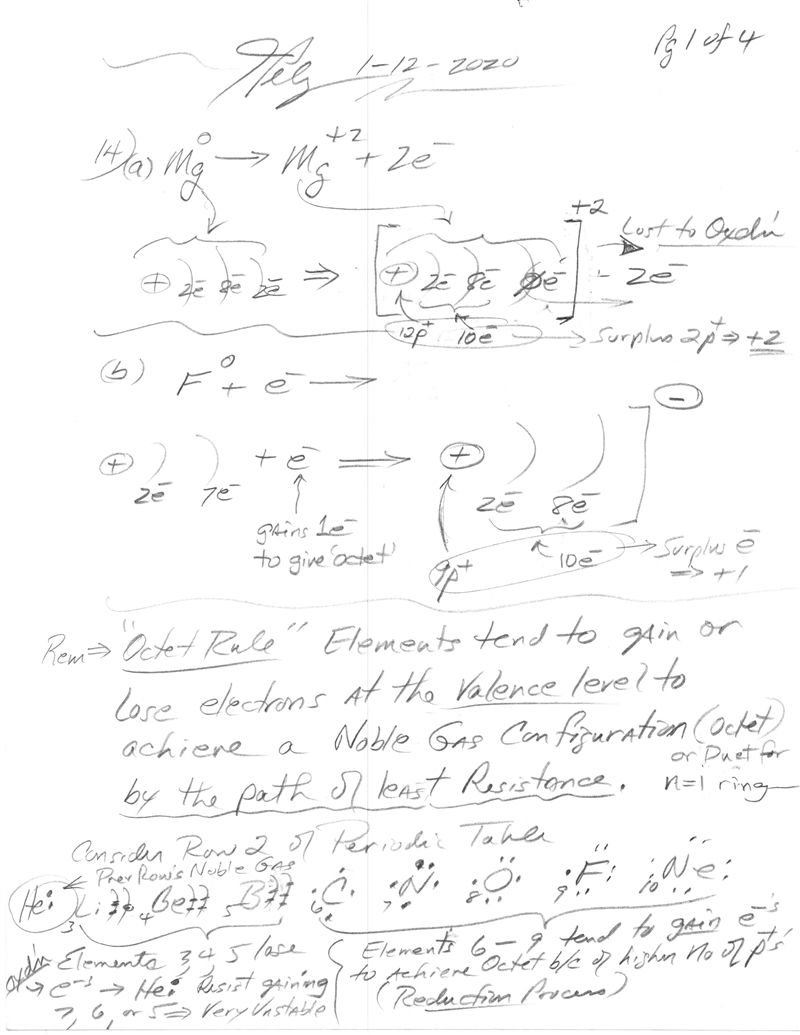 Pg 1 of 4
1-12-2020
14)(a) Mg⁰ → Mg⁺² + 2e⁻
+2
+ 2e⁻ 8e⁻ 2e⁻ ⇒ + 2e⁻ 8e⁻ 0e⁻ Lost to Oxdn
- 2e⁻
12p⁺ 10e⁻ → Surplus 2p⁺ ⇒ +2
(b) F⁰ + e⁻ →
-
+ 2e⁻ 7e⁻ + e⁻ ⇒ + 2e⁻ 8e⁻
gains 1e⁻
to give 'octet'
9p⁺ 10e⁻ → Surplus e⁻
⇒ +1
Rem ⇒ "Octet Rule" Elements tend to gain or
lose electrons at the Valence level to
achieve a Noble Gas Configuration (octet)
or Duet for
by the path of least Resistance. n=1 ring
Consider Row 2 of Periodic Table
Prev Row's Noble Gas
He: 3 Li 4 Be 5 B 6 C 7 N 8 O 9 F 10 Ne
Elements 3, 4, 5 lose
oxdn → e⁻'s → He: Resist gaining
7, 6, or 5 ⇒ Very Unstable
Elements 6 - 9 tend to gain e⁻'s
to Achieve Octet b/c of higher No of p⁺s'
(Reduction Process)